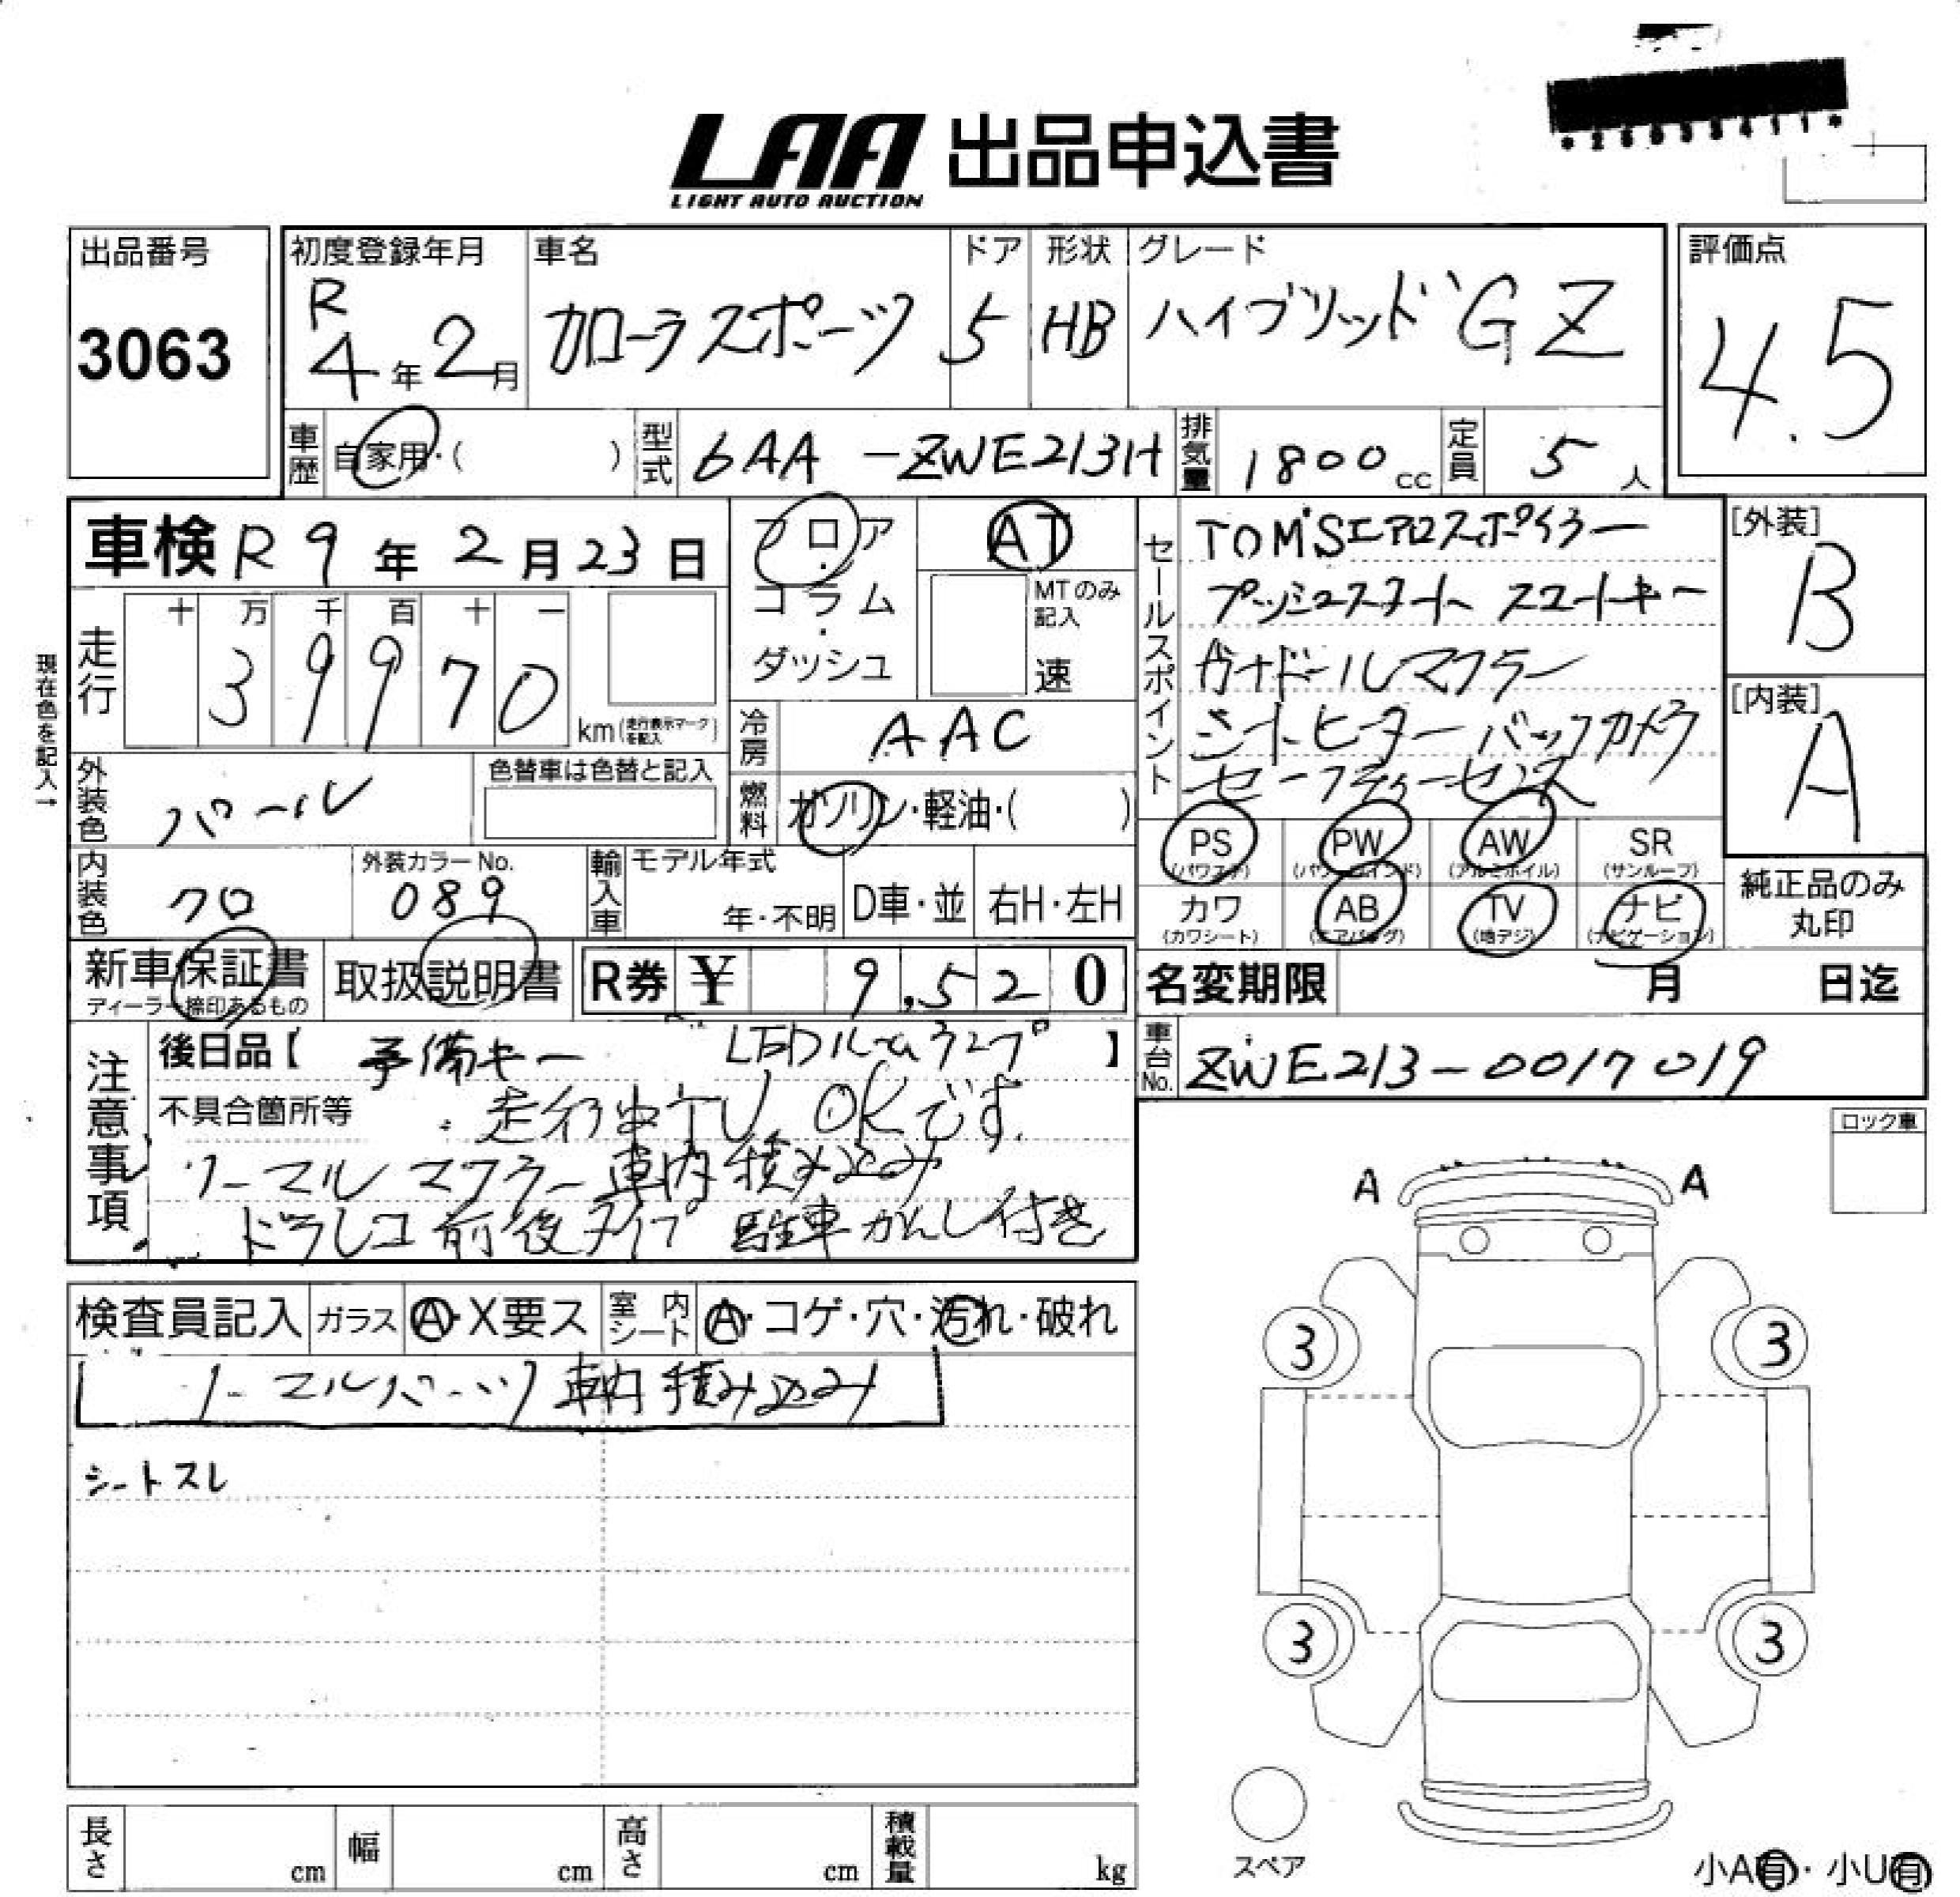 LAA 出品申込書
LIGHT AUTO AUCTION
出品番号
3063
初度登録年月
R
4年2月
車名
カローラスポーツ
ドア
5
形状
HB
グレード
ハイブリッド GZ
評価点
4.5
車歴
自家用・( )
型式
6AA-ZWE213H
排気量
1800cc
定員
5人
車検 R9年2月23日
フロア
・
コラム
・
ダッシュ
AT
MTのみ
記入
速
セールスポイント
TOM'Sエアロスポイラー
プッシュスタート スマートキー
ガナドールマフラー
シートヒーター バックカメラ
セーフティーセンス
[外装]
B
[内装]
A
現在色を記入→
走行
十 万 千 百 十 一
3 9 9 7 0
km(走行表示マークを記入)
冷房
AAC
外装色
パール
色替車は色替と記入
燃料
ガソリン・軽油・( )
PS (パワステ)
PW (パワーウインド)
AW (アルミホイル)
SR (サンルーフ)
カワ (カワシート)
AB (エアバッグ)
TV (地デジ)
ナビ (ナビゲーション)
純正品のみ
丸印
内装色
クロ
外装カラーNo.
089
輸入車
モデル年式
年・不明
D車・並
右H・左H
新車保証書
ディーラー捺印あるもの
取扱説明書
R券 ¥ 9,520
名変期限 月 日迄
注意事項
後日品【 予備キー LEDルームランプ 】
不具合箇所等 ・走行中TV OKです。
ノーマルマフラー車内積み込み
ドラレコ前後タイプ 駐車かんし付き
車台No.
ZWE213-0017019
ロック車
A A
検査員記入
ガラス
A・X要ス
室内シート
A・コゲ・穴・汚れ・破れ
ノーマルパーツ車内積み込み
シートスレ
3 3
3 3
スペア
小A有・小U有
長さ cm
幅 cm
高さ cm
積載量 kg